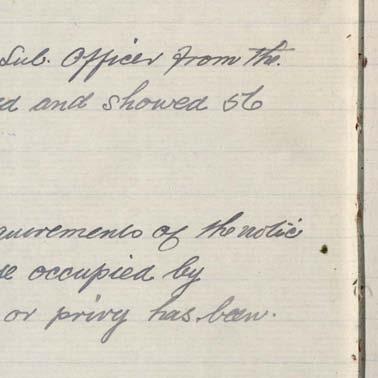 Sub. Officer from the.
ed and showed 56
quirements of the notice
se occupied by
or privy has been.